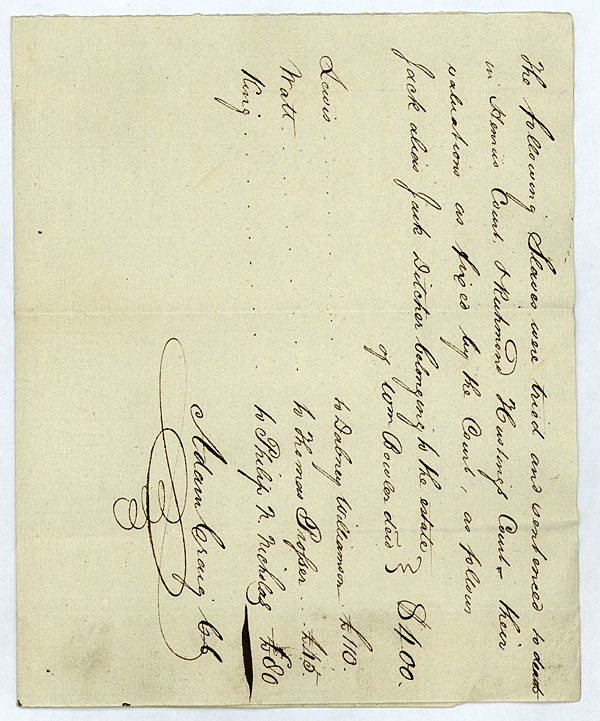 The following Slaves were tried and sentenced to death
in Henrico Court & Richmond Hustings Court & their
valuations as fixed by the Court, as follows
Jack alias Jack Ditcher belonging to the estate
of Wm Bowler decd } $400.
Lewis . . . . . . . . to Dabney Williamson £110.
Watt . . . . . . . . to Thomas Prosser . . £
King . . . . . . . . to Philip N. Nicholas £80
Adam Craig